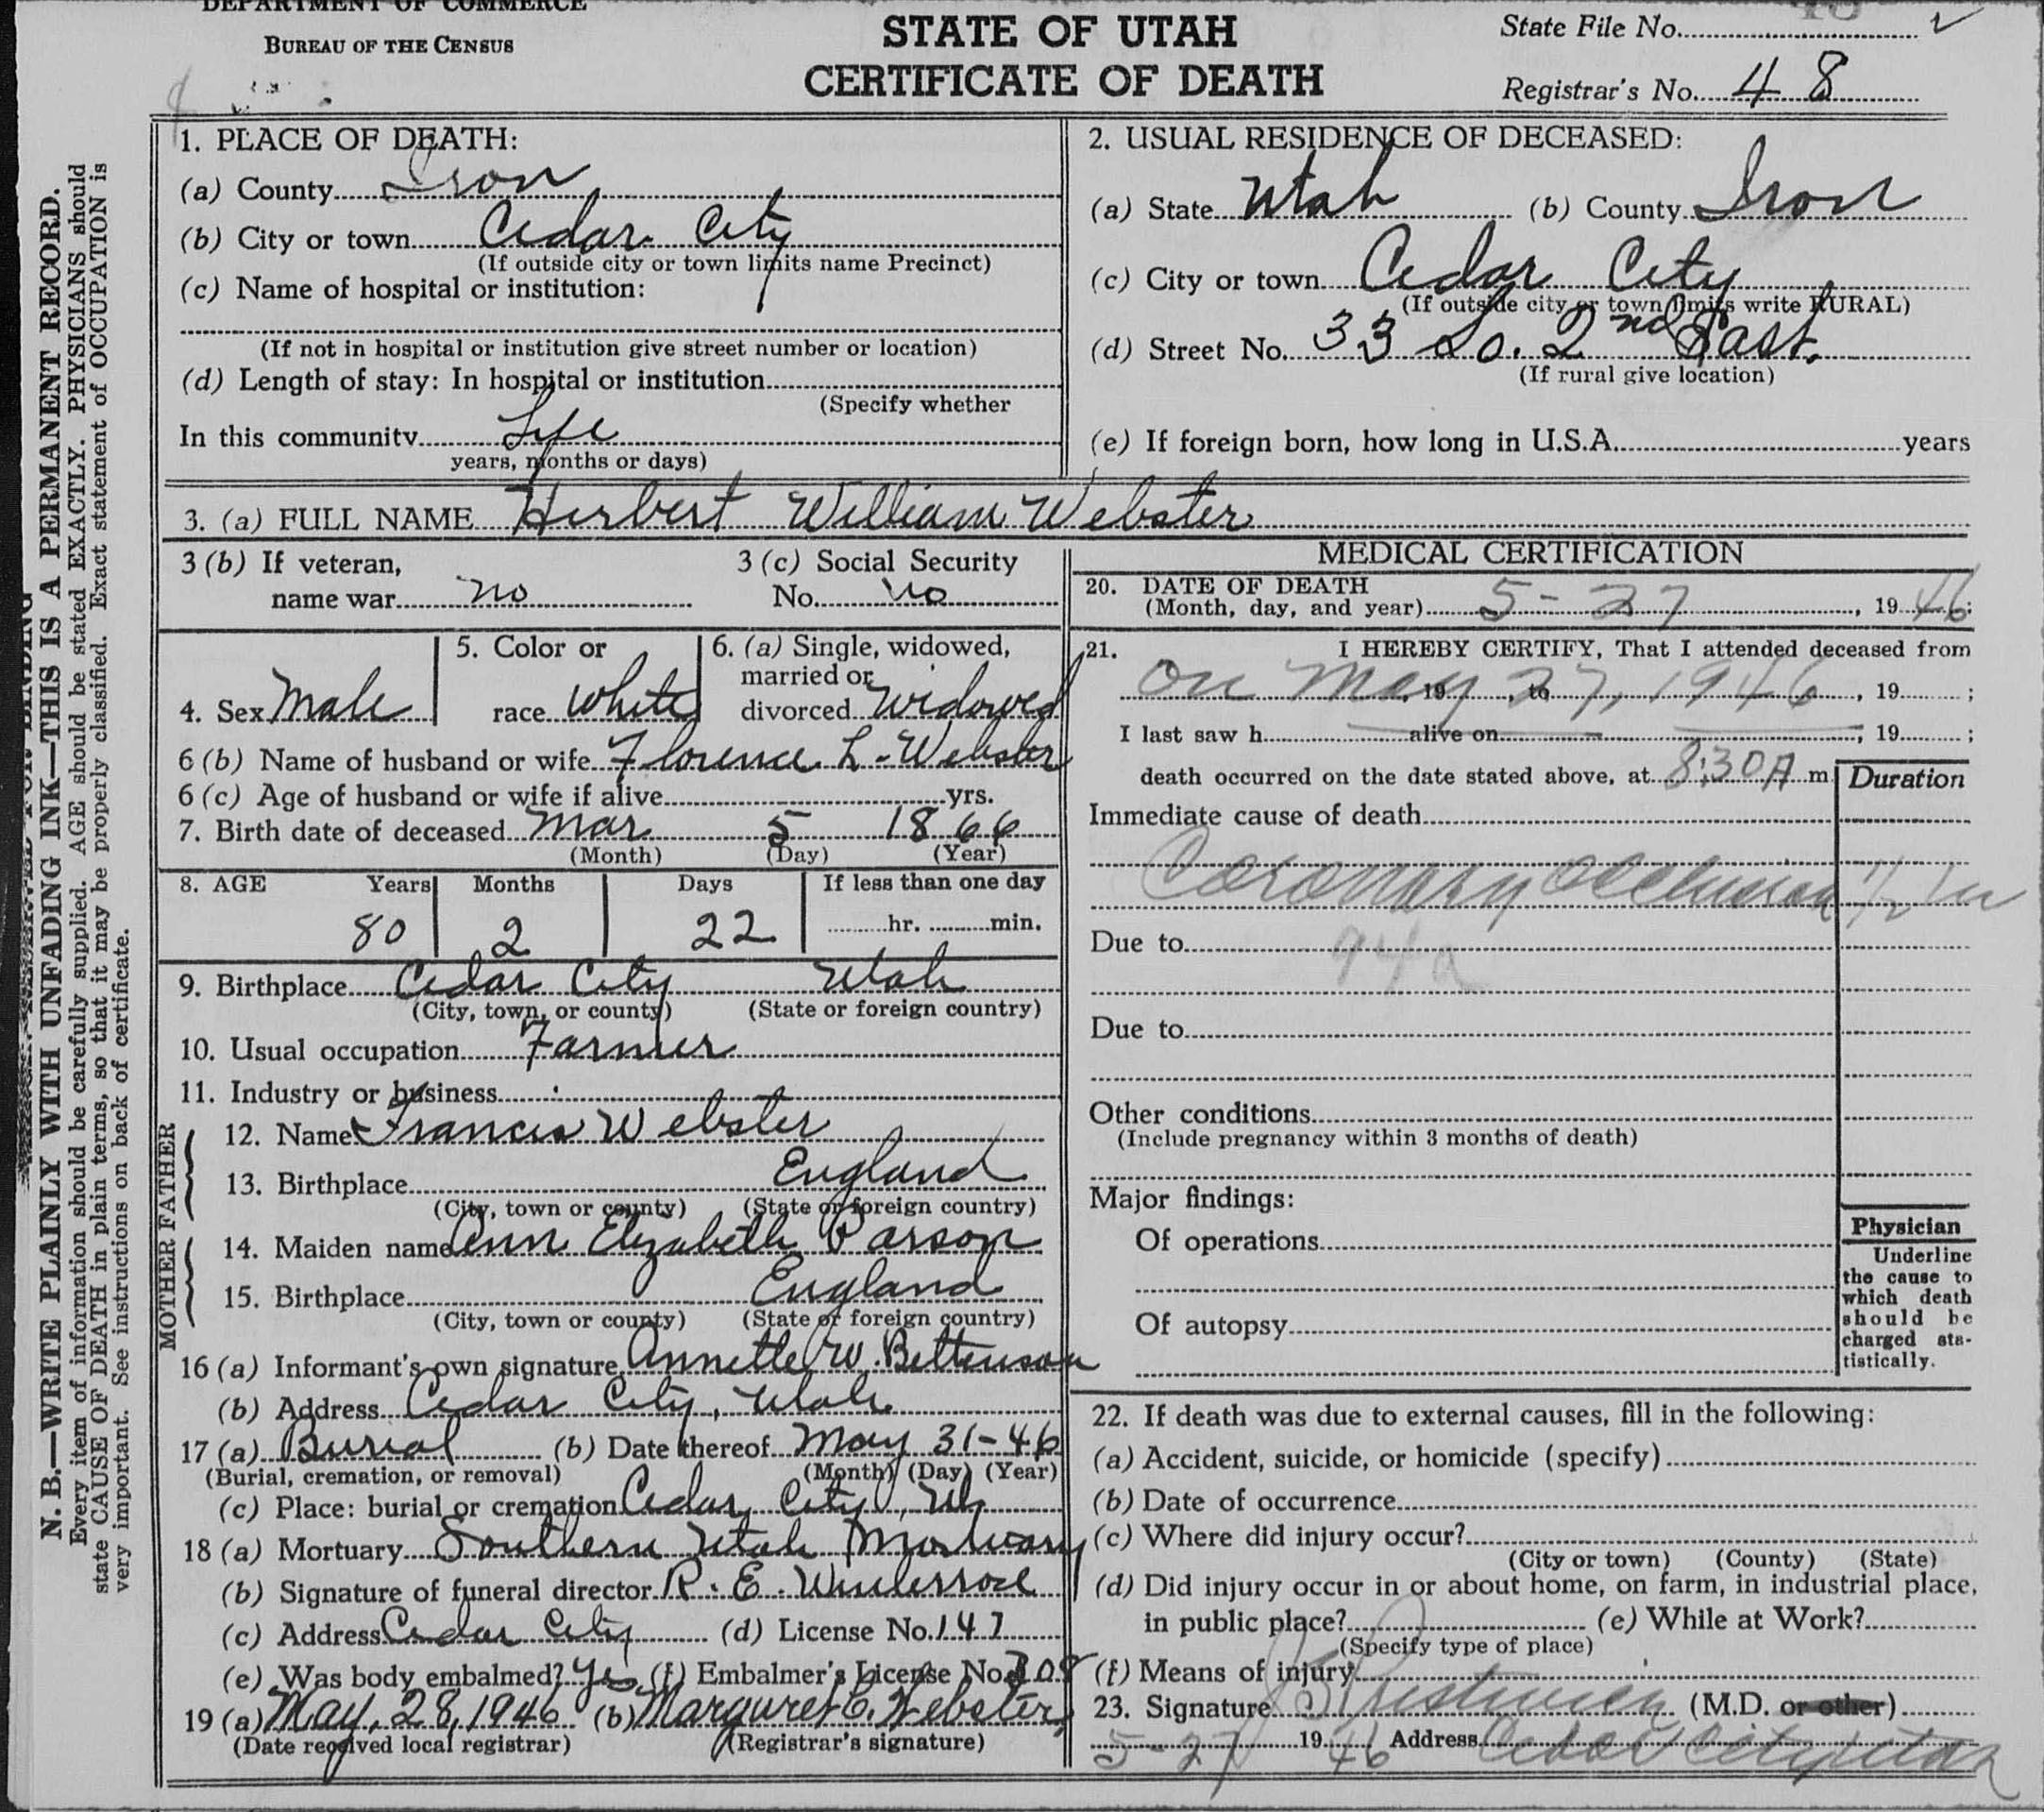 DEPARTMENT OF COMMERCE
BUREAU OF THE CENSUS
STATE OF UTAH
CERTIFICATE OF DEATH
State File No.
Registrar's No. 48
N. B.—WRITE PLAINLY WITH UNFADING INK—THIS IS A PERMANENT RECORD.
Every item of information should be carefully supplied. AGE should be stated EXACTLY. PHYSICIANS should
state CAUSE OF DEATH in plain terms, so that it may be properly classified. Exact statement of OCCUPATION is
very important. See instructions on back of certificate.
1. PLACE OF DEATH:
(a) County Iron
(b) City or town Cedar City
(If outside city or town limits name Precinct)
(c) Name of hospital or institution:
(If not in hospital or institution give street number or location)
(d) Length of stay: In hospital or institution
(Specify whether
In this community Life
years, months or days)
2. USUAL RESIDENCE OF DECEASED:
(a) State Utah (b) County Iron
(c) City or town Cedar City
(If outside city or town limits write RURAL)
(d) Street No. 33 So. 2nd East.
(If rural give location)
(e) If foreign born, how long in U.S.A. years
3. (a) FULL NAME Herbert William Webster
3 (b) If veteran,
name war no
3 (c) Social Security
No. No
4. Sex Male
5. Color or
race White
6. (a) Single, widowed,
married or
divorced Widowed
6 (b) Name of husband or wife Florence L. Webster
6 (c) Age of husband or wife if alive yrs.
7. Birth date of deceased Mar 5 1866
(Month) (Day) (Year)
8. AGE Years Months Days If less than one day
80 2 22 hr. min.
9. Birthplace Cedar City Utah
(City, town, or county) (State or foreign country)
10. Usual occupation Farmer
11. Industry or business
FATHER
12. Name Francis Webster
13. Birthplace England
(City, town or county) (State or foreign country)
MOTHER
14. Maiden name Ann Elizabeth Parson
15. Birthplace England
(City, town or county) (State or foreign country)
16 (a) Informant's own signature Annette W. Bettenson
(b) Address Cedar City, Utah
17 (a) Burial (b) Date thereof May 31-46
(Burial, cremation, or removal) (Month) (Day) (Year)
(c) Place: burial or cremation Cedar City, Ut
18 (a) Mortuary Southern Utah Mortuary
(b) Signature of funeral director R. E.
(c) Address Cedar City (d) License No. 147
(e) Was body embalmed? Yes (f) Embalmer's License No. 308
19 (a) May, 28, 1946 (b) Margaret C. Webster
(Date received local registrar) (Registrar's signature)
MEDICAL CERTIFICATION
20. DATE OF DEATH
(Month, day, and year) 5-27, 1946;
21. I HEREBY CERTIFY, That I attended deceased from
On May 27, 1946, 19 , to , 19 ;
I last saw h alive on , 19 ;
death occurred on the date stated above, at 8:30 A m
Duration
Immediate cause of death
Coronary Occlusion 1/2 hr
Due to
94a
Due to
Other conditions
(Include pregnancy within 3 months of death)
Major findings:
Of operations
Of autopsy
Physician
Underline
the cause to
which death
should be
charged sta-
tistically.
22. If death was due to external causes, fill in the following:
(a) Accident, suicide, or homicide (specify)
(b) Date of occurrence
(c) Where did injury occur?
(City or town) (County) (State)
(d) Did injury occur in or about home, on farm, in industrial place,
in public place? (e) While at Work?
(Specify type of place)
(f) Means of injury
23. Signature (M.D. or other)
5-27 1946 Address Cedar City Utah